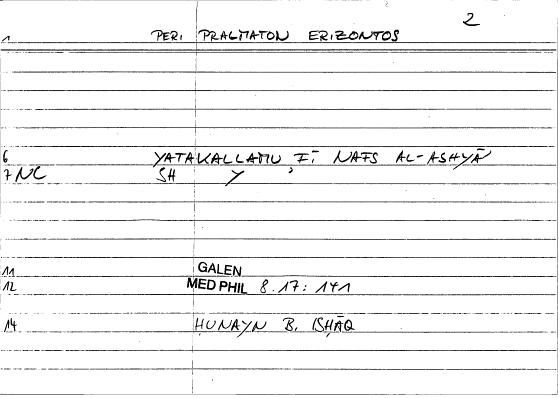 2
1 PERI PRAGMATON ERIZONTOS
6 YATAKALLAMU FĪ NAFS AL-ASHYĀ
7 NC SH Y ʾ
11 GALEN
12 MED PHIL 8.17: 141
14 ḤUNAYN B. ISḤĀQ